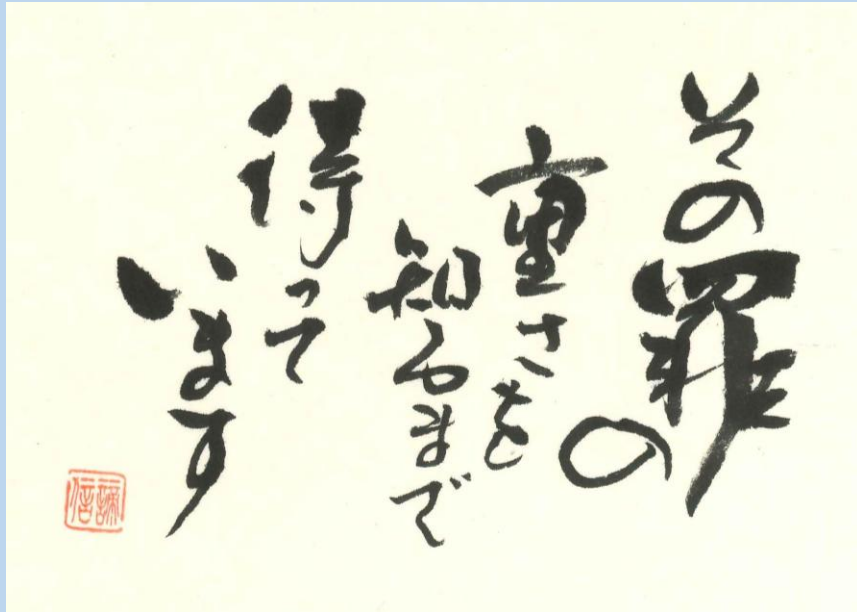 その罪の
重さを
知るまで
待って
います